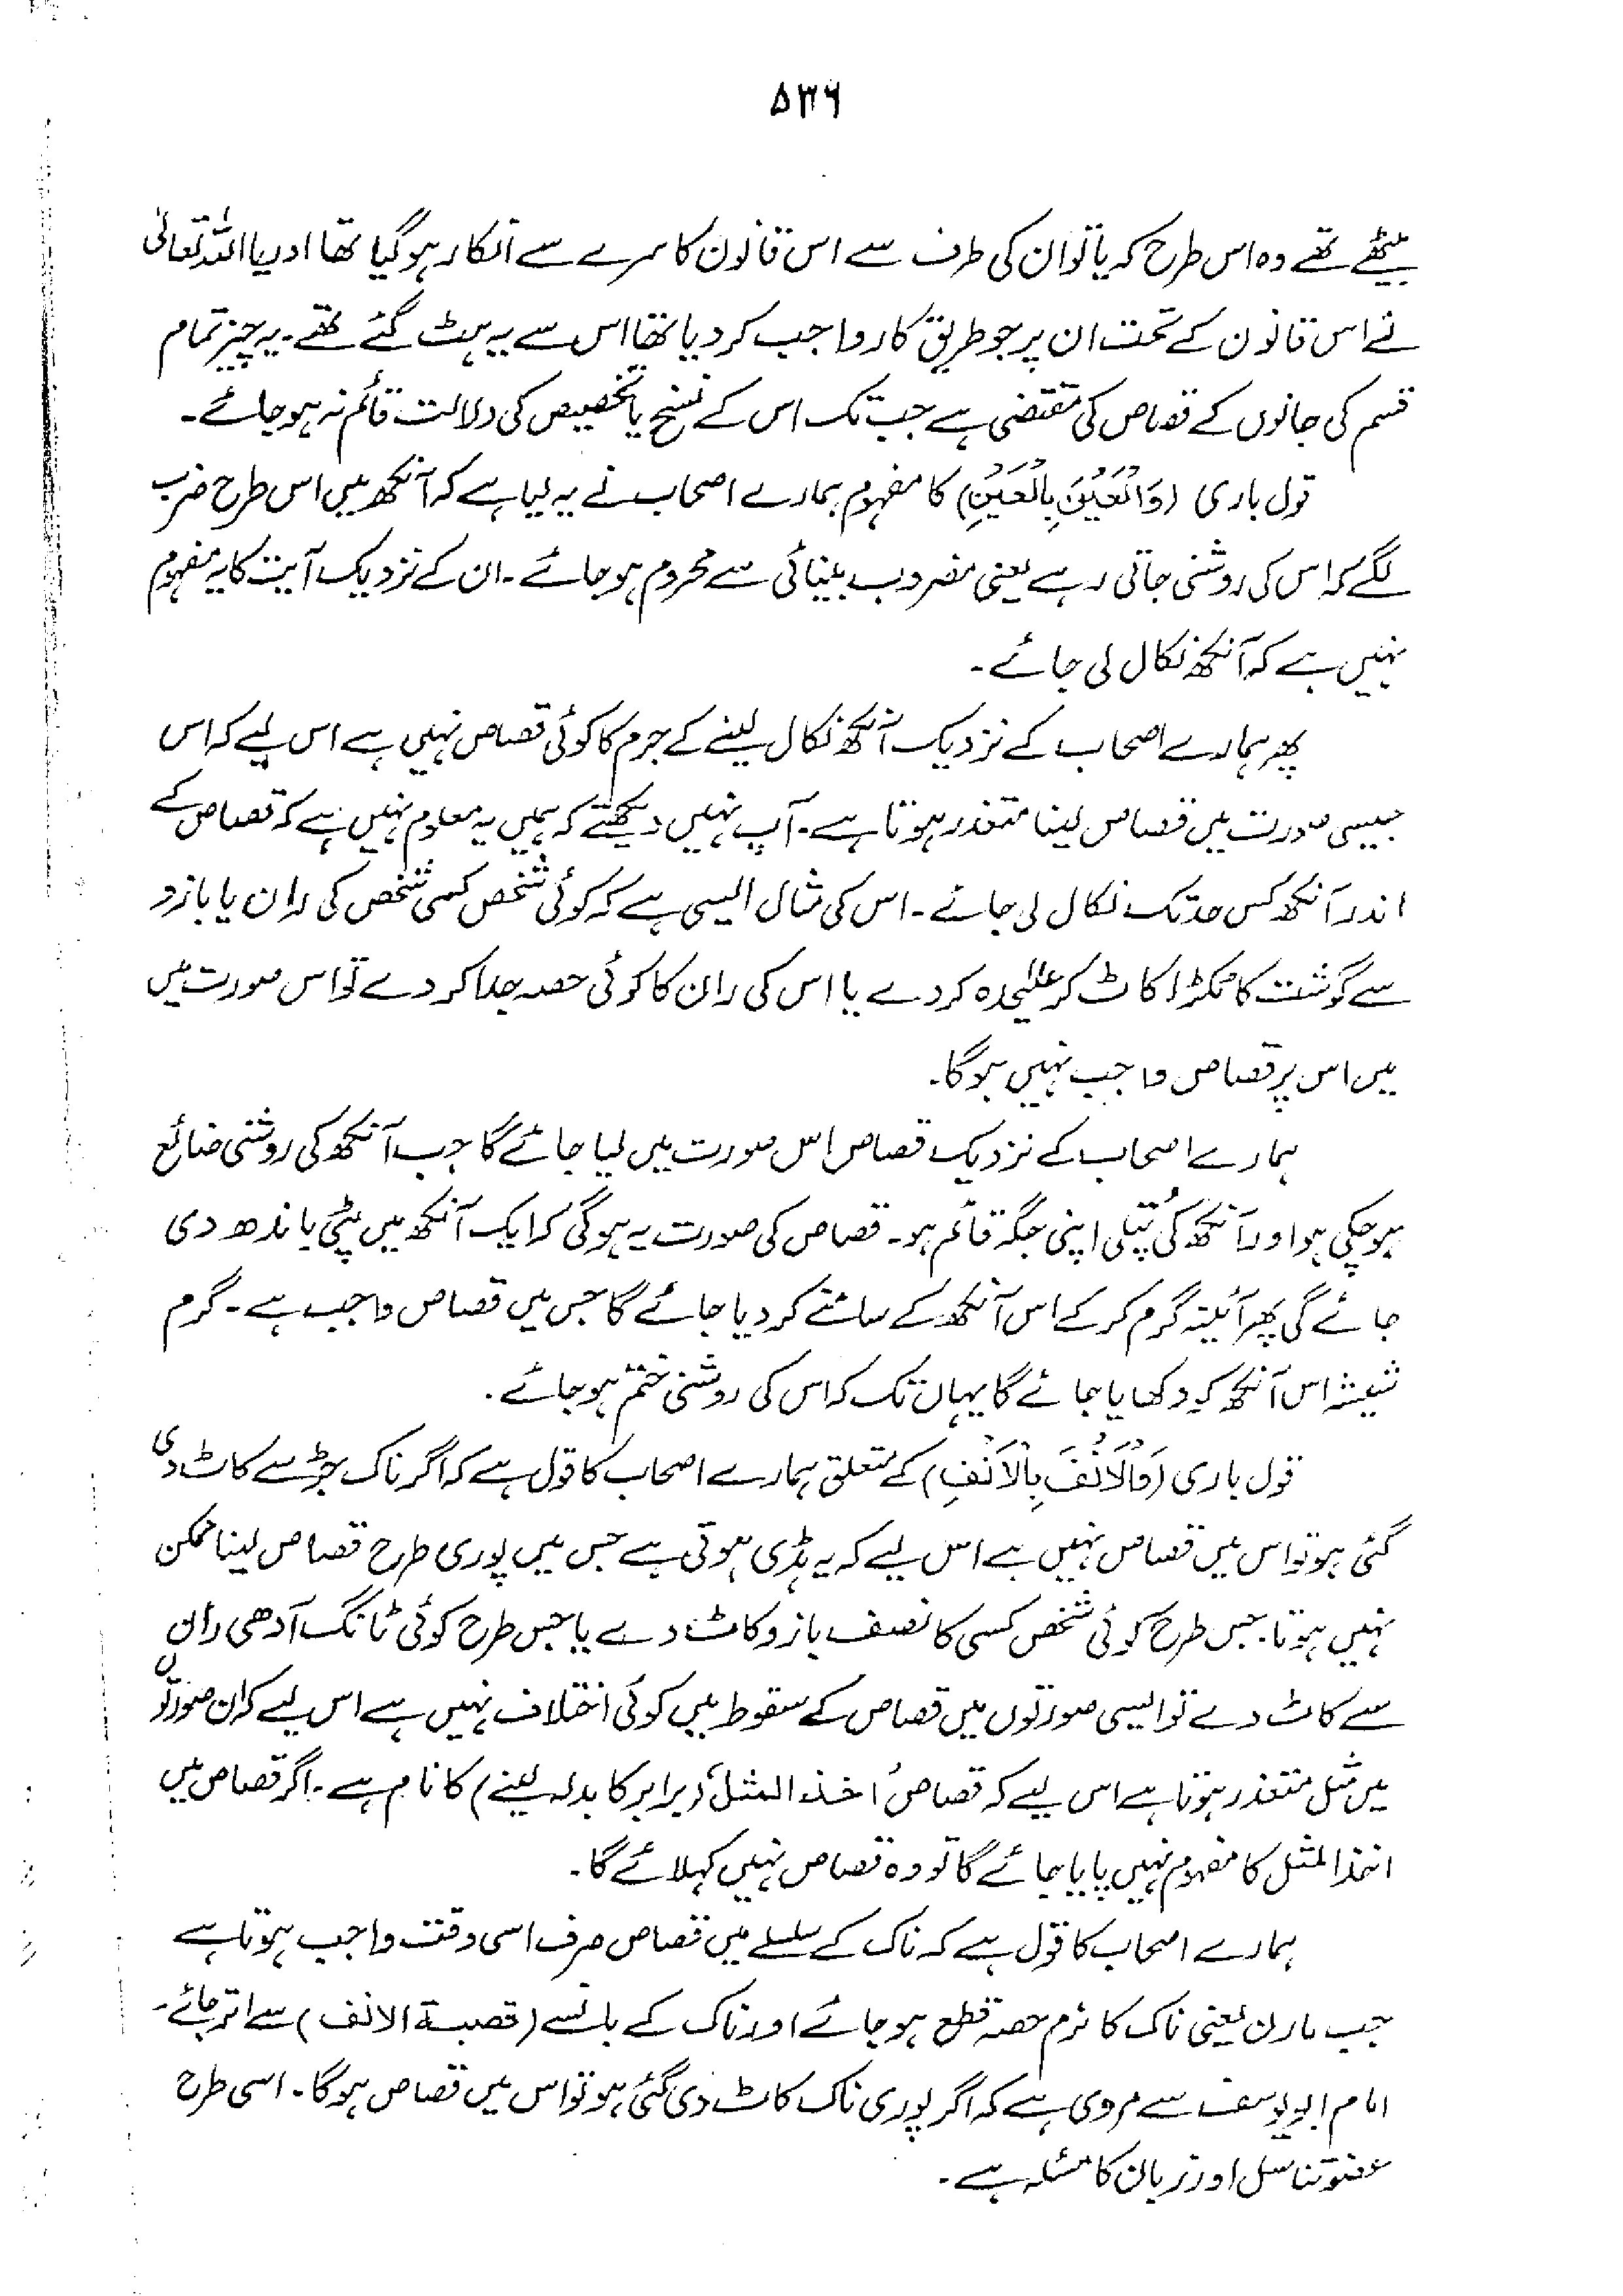 ۵۳۶
بیٹھے تھے وہ اس طرح کہ یا تو ان کی طرف سے اس قانون کا سرے سے انکار ہو گیا تھا اور یا اللہ تعالیٰ
نے اس قانون کے تحت ان پر جو طریق کار واجب کر دیا تھا اس سے یہ ہٹ گئے تھے۔ یہ چیز تمام
قسم کی جانوں کے قصاص کی مقتضی ہے جب تک اس کے نسخ یا تخصیص کی دلالت قائم نہ ہو جائے۔
قول باری (وَالْعَيْنَ بِالْعَيْنِ) کا مفہوم ہمارے اصحاب نے یہ لیا ہے کہ آنکھ میں اس طرح ضرب
لگے کہ اس کی روشنی جاتی رہے یعنی مضروب بینائی سے محروم ہو جائے۔ ان کے نزدیک آیت کا یہ مفہوم
نہیں ہے کہ آنکھ نکال لی جائے۔
پھر ہمارے اصحاب کے نزدیک آنکھ نکال لینے کے جرم کا کوئی قصاص نہیں ہے اس لیے کہ اس
جیسی صورت میں قصاص لینا متعذر ہوتا ہے۔ آپ نہیں دیکھتے کہ ہمیں یہ معلوم نہیں ہے کہ قصاص کے
اندر آنکھ کس حد تک نکال لی جائے۔ اس کی مثال ایسی ہے کہ کوئی شخص کسی شخص کی ران یا بازو
سے گوشت کا ٹکڑا کاٹ کر علیٰحدہ کر دے یا اس کی ران کا کوئی حصہ جدا کر دے تو اس صورت میں
میں اس پر قصاص واجب نہیں ہوگا۔
ہمارے اصحاب کے نزدیک قصاص اس صورت میں لیا جائے گا جب آنکھ کی روشنی ضائع
ہو چکی ہو اور آنکھ کی پُتلی اپنی جگہ قائم ہو۔ قصاص کی صورت یہ ہوگی کہ ایک آنکھ میں پٹی باندھ دی
جائے گی پھر آئینہ گرم کر کے اس آنکھ کے سامنے کر دیا جائے گا جس میں قصاص واجب ہے۔ گرم
شیشہ اس آنکھ کو دکھایا جائے گا یہاں تک کہ اس کی روشنی ختم ہو جائے۔
قول باری (وَالْاَنْفَ بِالْاَنْفِ) کے متعلق ہمارے اصحاب کا قول ہے کہ اگر ناک جڑ سے کاٹ دی
گئی ہو تو اس میں قصاص نہیں ہے اس لیے کہ یہ ہڈی ہوتی ہے جس میں پوری طرح قصاص لینا ممکن
نہیں ہوتا۔ جس طرح کوئی شخص کسی کا نصف بازو کاٹ دے یا جس طرح کوئی ٹانگ آدھی ران
سے کاٹ دے تو ایسی صورتوں میں قصاص کے سقوط میں کوئی اختلاف نہیں ہے اس لیے کہ ان صورتوں
میں مثل متعذر ہوتا ہے اس لیے کہ قصاص 'اخذ المثل' (برابر کا بدلہ لینے) کا نام ہے۔ اگر قصاص میں
اخذ المثل کا مفہوم نہیں پایا جائے گا تو وہ قصاص نہیں کہلائے گا۔
ہمارے اصحاب کا قول ہے کہ ناک کے سلسلے میں قصاص صرف اسی وقت واجب ہوتا ہے
جب مارن یعنی ناک کا نرم حصہ قطع ہو جائے اور ناک کے بانسے (قصبۃ الانف) سے اتر جائے۔
امام ابو یوسف سے مروی ہے کہ اگر پوری ناک کاٹ دی گئی ہو تو اس میں قصاص ہوگا۔ اسی طرح
عضو تناسل اور زبان کا مسئلہ ہے۔